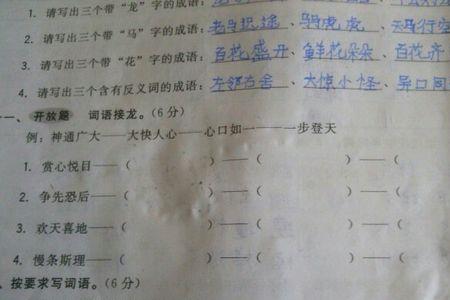 1. 请写出三个带“龙”字的成语:
2. 请写出三个带“马”字的成语: 老马识途、马虎虎、天马行空
3. 请写出三个带“花”字的成语: 百花盛开、鲜花朵朵、百花齐
4. 请写出三个含有反义词的成语: 左邻右舍、大惊小怪、异口同
一、开放题 词语接龙。(6分)
例: 神通广大——大快人心——心口如一——一步登天
1. 赏心悦目——( )—( )—(
2. 争先恐后——( )—( )—(
3. 欢天喜地——( )—( )—(
4. 慢条斯理——( )—( )—(
、按要求写词语。(6分)